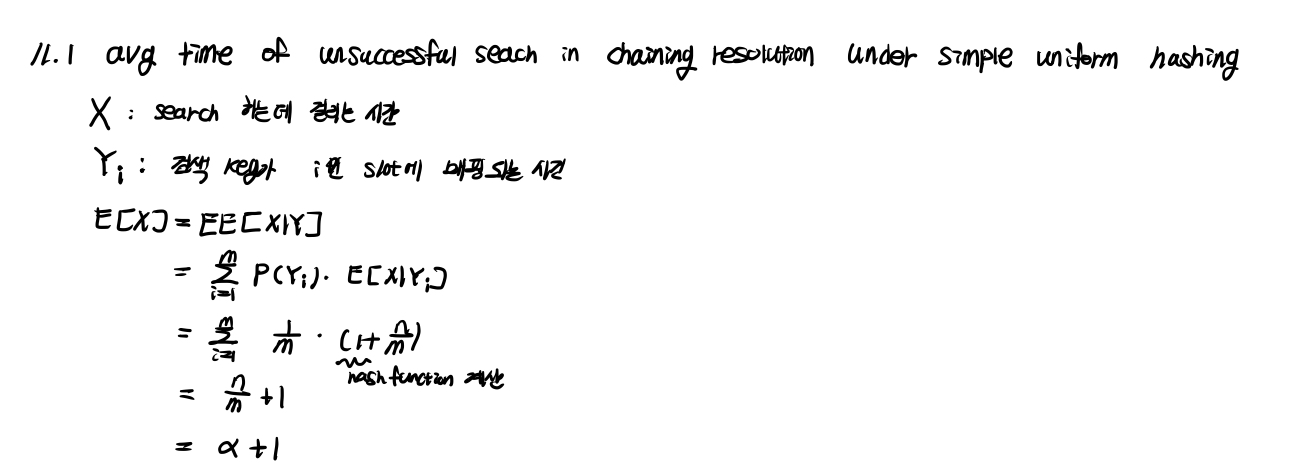 11.1 avg time of unsuccessful seach in chaining resolution under simple uniform hashing
X : search 하는데 걸리는 시간
Yi : 검색 key가 i번 slot에 매핑되는 시간
E[X] = EE[X|Y]
= Σ_{i=1}^{m} P(Yi) · E[X|Yi]
= Σ_{i=1}^{m} 1/m · (1+n/m)
hash function 계산
= n/m +1
= α +1